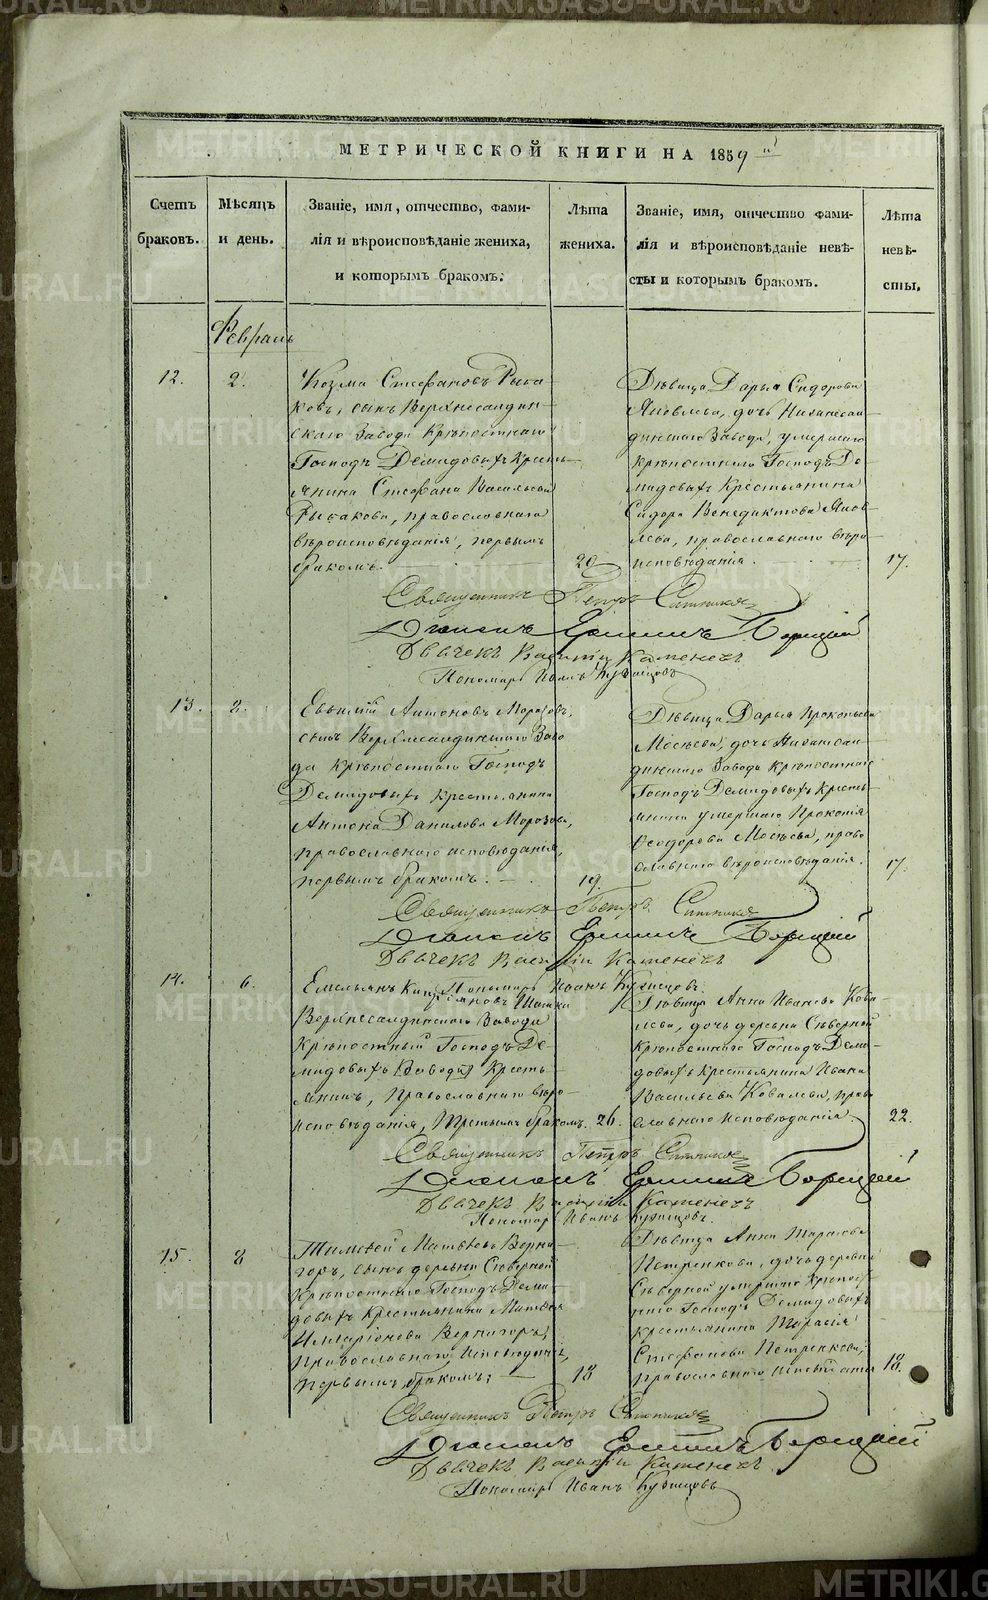 МЕТРИЧЕСКОЙ КНИГИ НА 1859й
Счетъ браковъ.
Мѣсяцъ и день.
Званіе, имя, отчество, фами-
лія и вѣроисповѣданіе жениха,
и которымъ бракомъ.
Лѣта
жениха.
Званіе, имя, отчество фами-
лія и вѣроисповѣданіе невѣ-
сты и которымъ бракомъ.
Лѣта
невѣ-
сты.
Февраль
12.
2.
Козма Стефановъ Рыба-
ковъ, сынъ Верхнесалдин-
скаго Завода Крѣпостнаго
Господъ Демидовыхъ Кресть-
янина Стефана Васильева
Рыбакова, православнаго
вѣроисповѣданія, первымъ
бракомъ.
20
Дѣвица Дарья Сидорова
Яковлева, дочь Нижнесал-
динскаго Завода, умершаго
крѣпостнаго Господъ Де-
мидовыхъ Крестьянина
Сидора Венедиктова Яков-
лева, православнаго вѣро-
исповѣданія.
17.
Священникъ Петръ Ситников
Діаконъ Борецкій
Дьячекъ Василій Каменехъ
Пономарь Иванъ Кузнецовъ
13.
2.
Евѳимій Антоновъ Морозовъ,
сынъ Верхнесалдинскаго Заво-
да крѣпостнаго Господъ
Демидовыхъ крестьянина
Антона Данилова Морозова,
православнаго исповѣданія,
первымъ бракомъ.
19.
Дѣвица Дарья Прокопьева
Мосѣева, дочь Нижнесал-
динскаго Завода крѣпостнаго
Господъ Демидовыхъ Кресть-
янина умершаго Прокопія
Ѳеодорова Мосѣева, право-
славнаго вѣроисповѣданія.
17.
Священникъ Петръ Ситников
Діаконъ Борецкій
Дьячекъ Василій Каменехъ
Пономарь Иванъ Кузнецовъ
14.
6.
Емельянъ
Верхнесалдинскаго Завода
Крѣпостный Господъ Де-
мидовыхъ Заводскій Кресть-
янинъ, Православнаго вѣро-
исповѣданія, Третьимъ бракомъ.
26.
Дѣвица Анна Иванова Кова-
лева, дочь деревни Сѣверной
крѣпостнаго Господъ Деми-
довыхъ Крестьянина Ивана
Васильева Ковалева, право-
славнаго исповѣданія.
22.
Священникъ Петръ Ситников
Діаконъ Борецкій
Дьячекъ Василій Каменехъ
Пономарь Иванъ Кузнецовъ.
15.
8
Тимоѳей Матвѣевъ Верни-
горъ, сынъ деревни Сѣверной
Крѣпостнаго Господъ Деми-
довыхъ Крестьянина Матвѣя
Илларіонова Вернигоръ,
Православнаго исповѣданія,
первымъ бракомъ;
18
Дѣвица Анна Тарасова
Петренкова, дочь деревни
Сѣверной умершаго Крѣпост-
наго Господъ Демидовыхъ
крестьянина Тарасія
Стефанова Петренкова,
православнаго исповѣданія
18.
Священникъ Петръ Ситников
Діаконъ Борецкій
Дьячекъ Василій Каменехъ
Пономарь Иванъ Кузнецовъ
METRIKI.GASO-URAL.RU